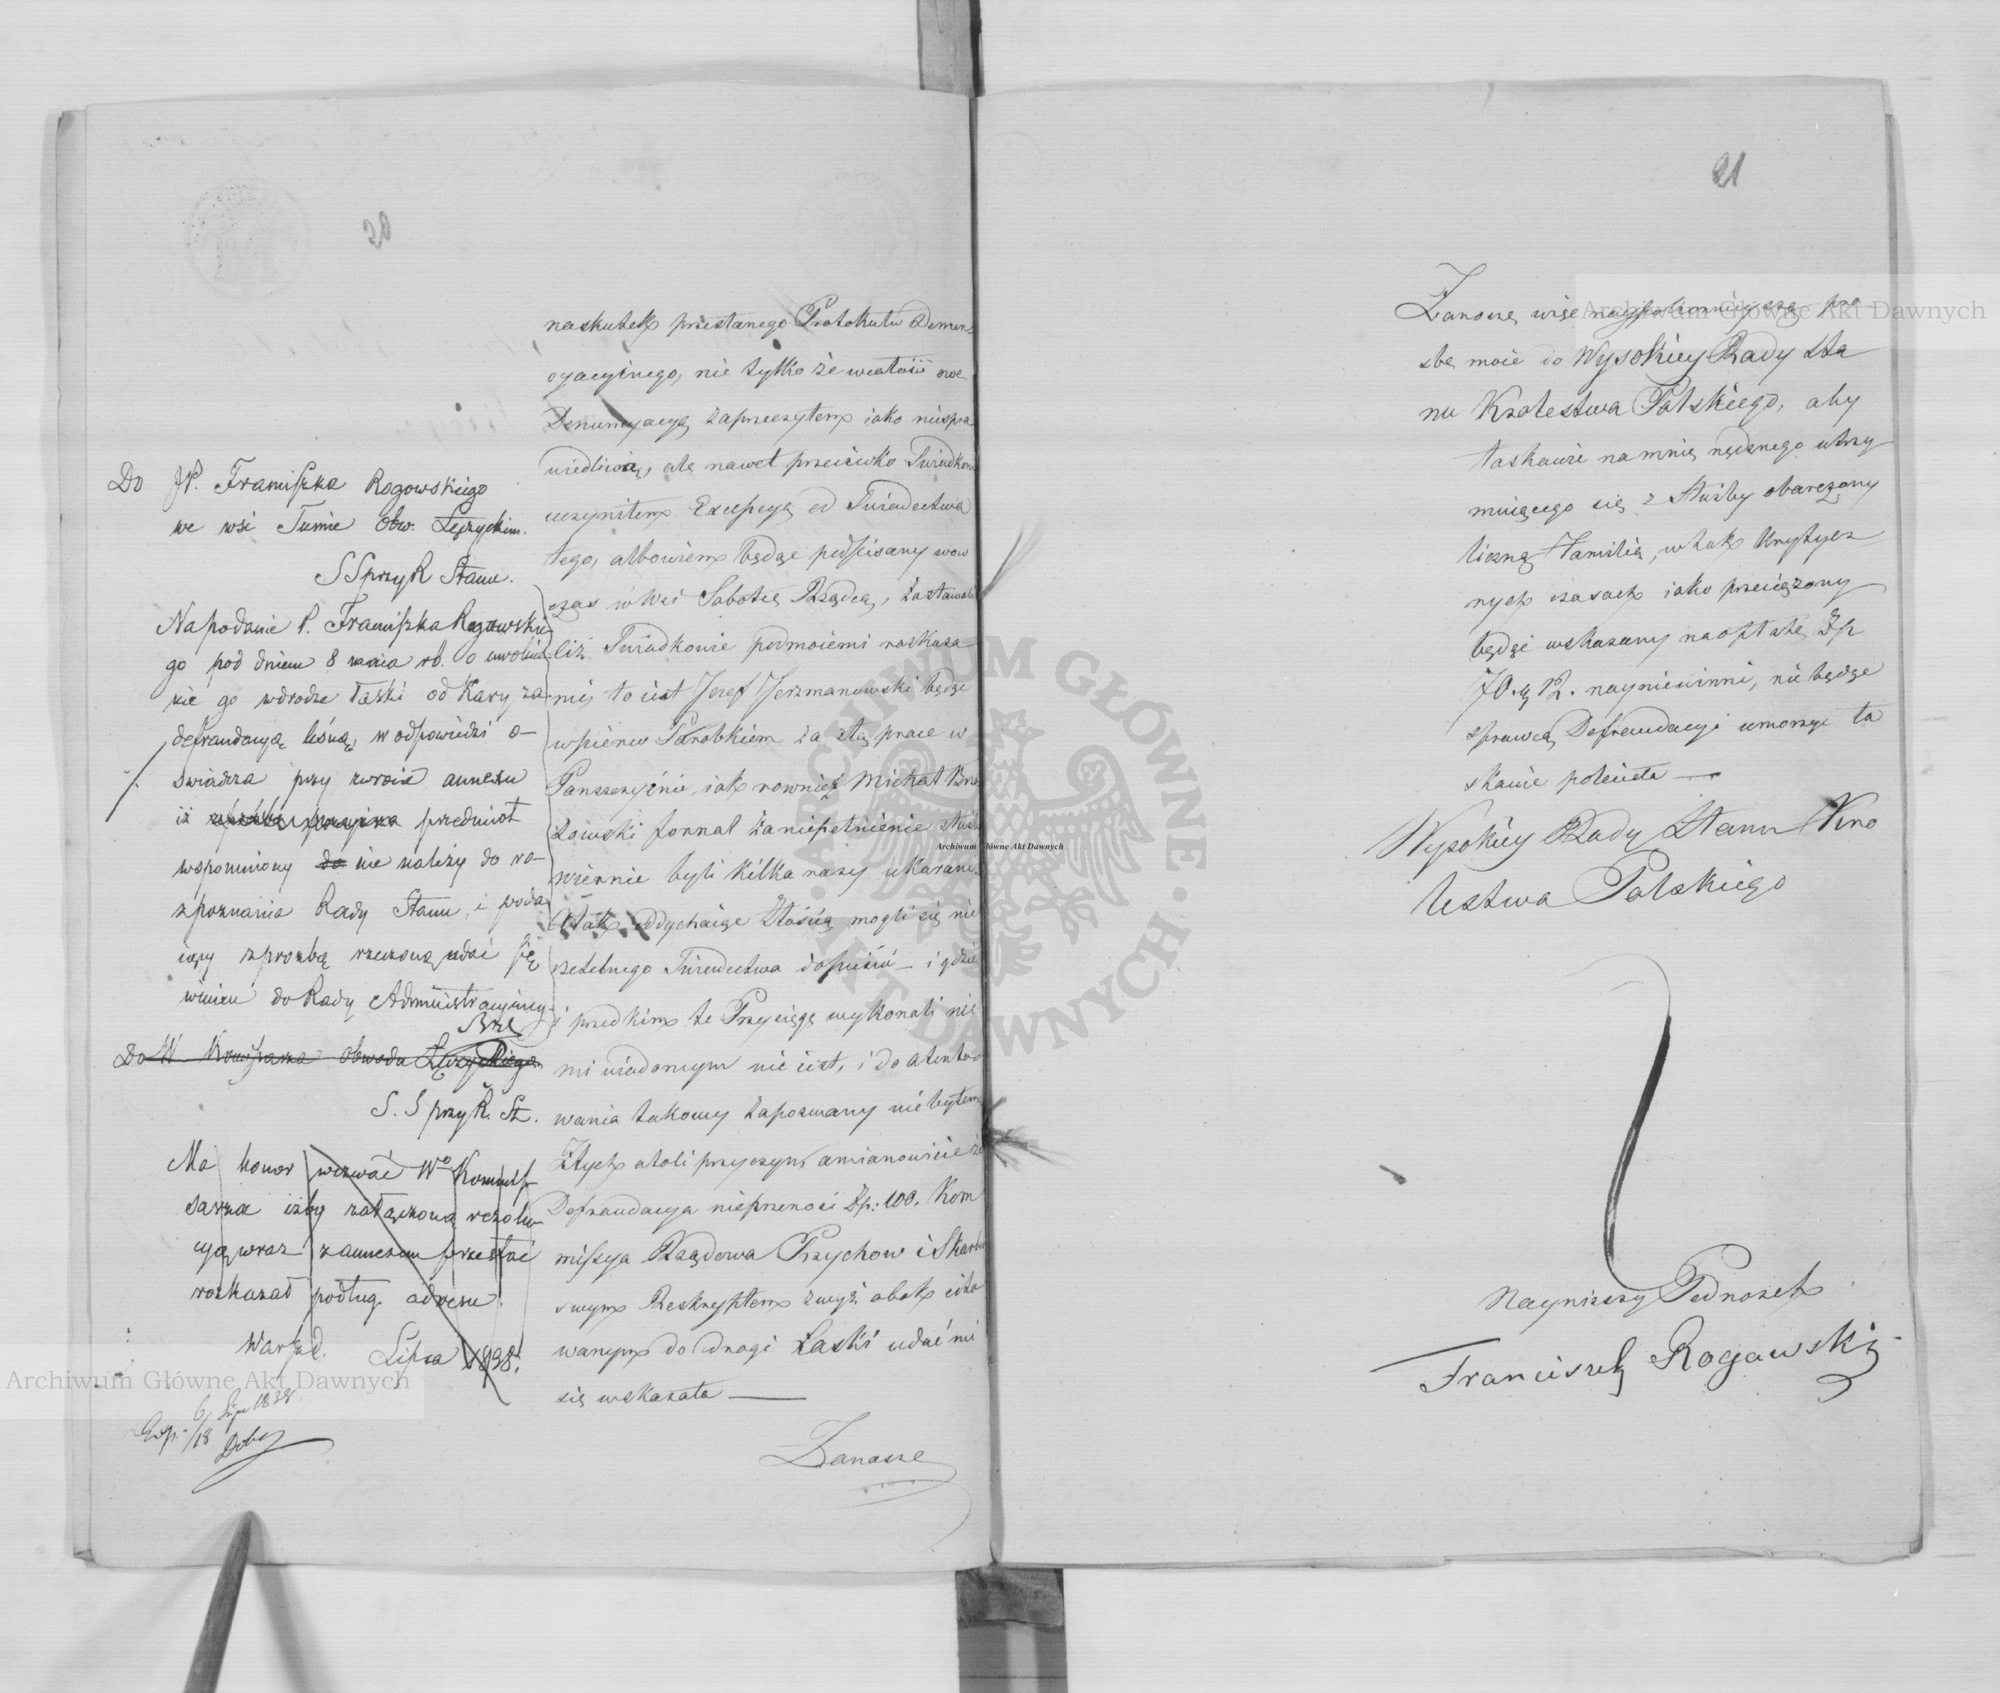 20
Do JP. Franciszka Rogowskiego
we wsi Tumie Obw. Łęczyckim.
SSprzyR Stanu.
Na podanie P. Franciszka Rogowskie
go pod dniem 8 maia rb. o uwolnie
nie go w drodze łaski od Kary za
defraudacyą leśną, w odpowiedzi o-
świadcza przy zwrocie annexu
iż przedmiot
wspomniony do nie należy do ro-
zpoznania Rady Stanu, i poda
iący z prozbą rzeczoną udać się
winien do Rady Administracyiney
Do W Kommissarza Obwodu Łęczyckiego
S. S przy R. St.
Ma honor wezwać Wo Kommiss
sarza iżby załączoną rezolu-
cyą wraz z annexem przesłać
rozkazał podług adresu.
Warsz. Lipca 1838.
Exp. 6/18 Lipca 1838
na skutek przesłanego Protokułu Denun
cyacyinego, nie tylko że w całości owe
Denuncyacyą zaprzeczyłem iako niespra
wiedliwą, ale nawet przeciwko Świadkom
uczyniłem Excepcyą od Świadectwa
tego, albowiem będąc podpisany wow
czas w Wsi Sobotce Rządcą, zostawali
ciż Świadkowie pod moiemi roskaza
mi, to iest Jozef Jerzmanowski będąc
wpierw Parobkiem za złą prace w
Panszczyźnie, iak rownież Michał Brzo
zowski fornal za niepełnienie służby
wiernie byli kilka razy ukarani,
A tak oddychaiąc Złością mogli się nie
rzetelnego Świadectwa dopuścić – i gdzie
i przed kim te Przysięgę wykonali nie
mi wiadomym nie iest, i do atento
wania takowy zapozwany nie byłem
Z tych atoli przyczyn, a mianowicie że
Defraudacya nieprzenosi Zp: 100. Kom
missya Rządowa Przychow i Skarbu
swym Reskryptem zwyż obok cyto
wanym do drogi Łaski udać mi
się wskazała —
Zanoszę
21
Zanoszę więc naypokorniejszą pro
zbę moie do Wysokiey Rady Sta
nu Krolestwa Polskiego, aby
łaskawie na mnie nędznego utrzy
muiącego się z Służby obarczony
liczną Familią, w tak krytycz
nych czasach iako przeciążony
będąc wskazany na opłatę Zp
70. g 12. nayniewinni, nie będąc
sprawcą Defraudacyi umorzyć ła
skawie poleciła —
Wysokiey Rady Stanu Kro
lestwa Polskiego
Nayniższy Podnożek
Franciszek Rogowski
Archiwum Główne Akt Dawnych
Archiwum Główne Akt Dawnych
Archiwum Główne Akt Dawnych
ARCHIWUM GŁÓWNE · AKT DAWNYCH ·